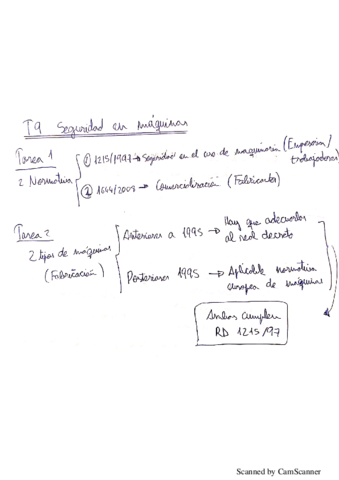 T9 Seguridad en máquinas
Tarea 1
2 Normativa
① 1215/1997 → Seguridad en el uso de maquinaria (Empresarios/
trabajadores)
② 1644/2008 → Comercialización (Fabricantes)
Tarea 2
2 tipos de máquinas
(Fabricación)
Anteriores a 1995 → Hay que adecuarlas
al real decreto
Posteriores 1995 → Aplicable normativa
europea de máquinas
Ambas cumplen
RD 1215/97
Scanned by CamScanner